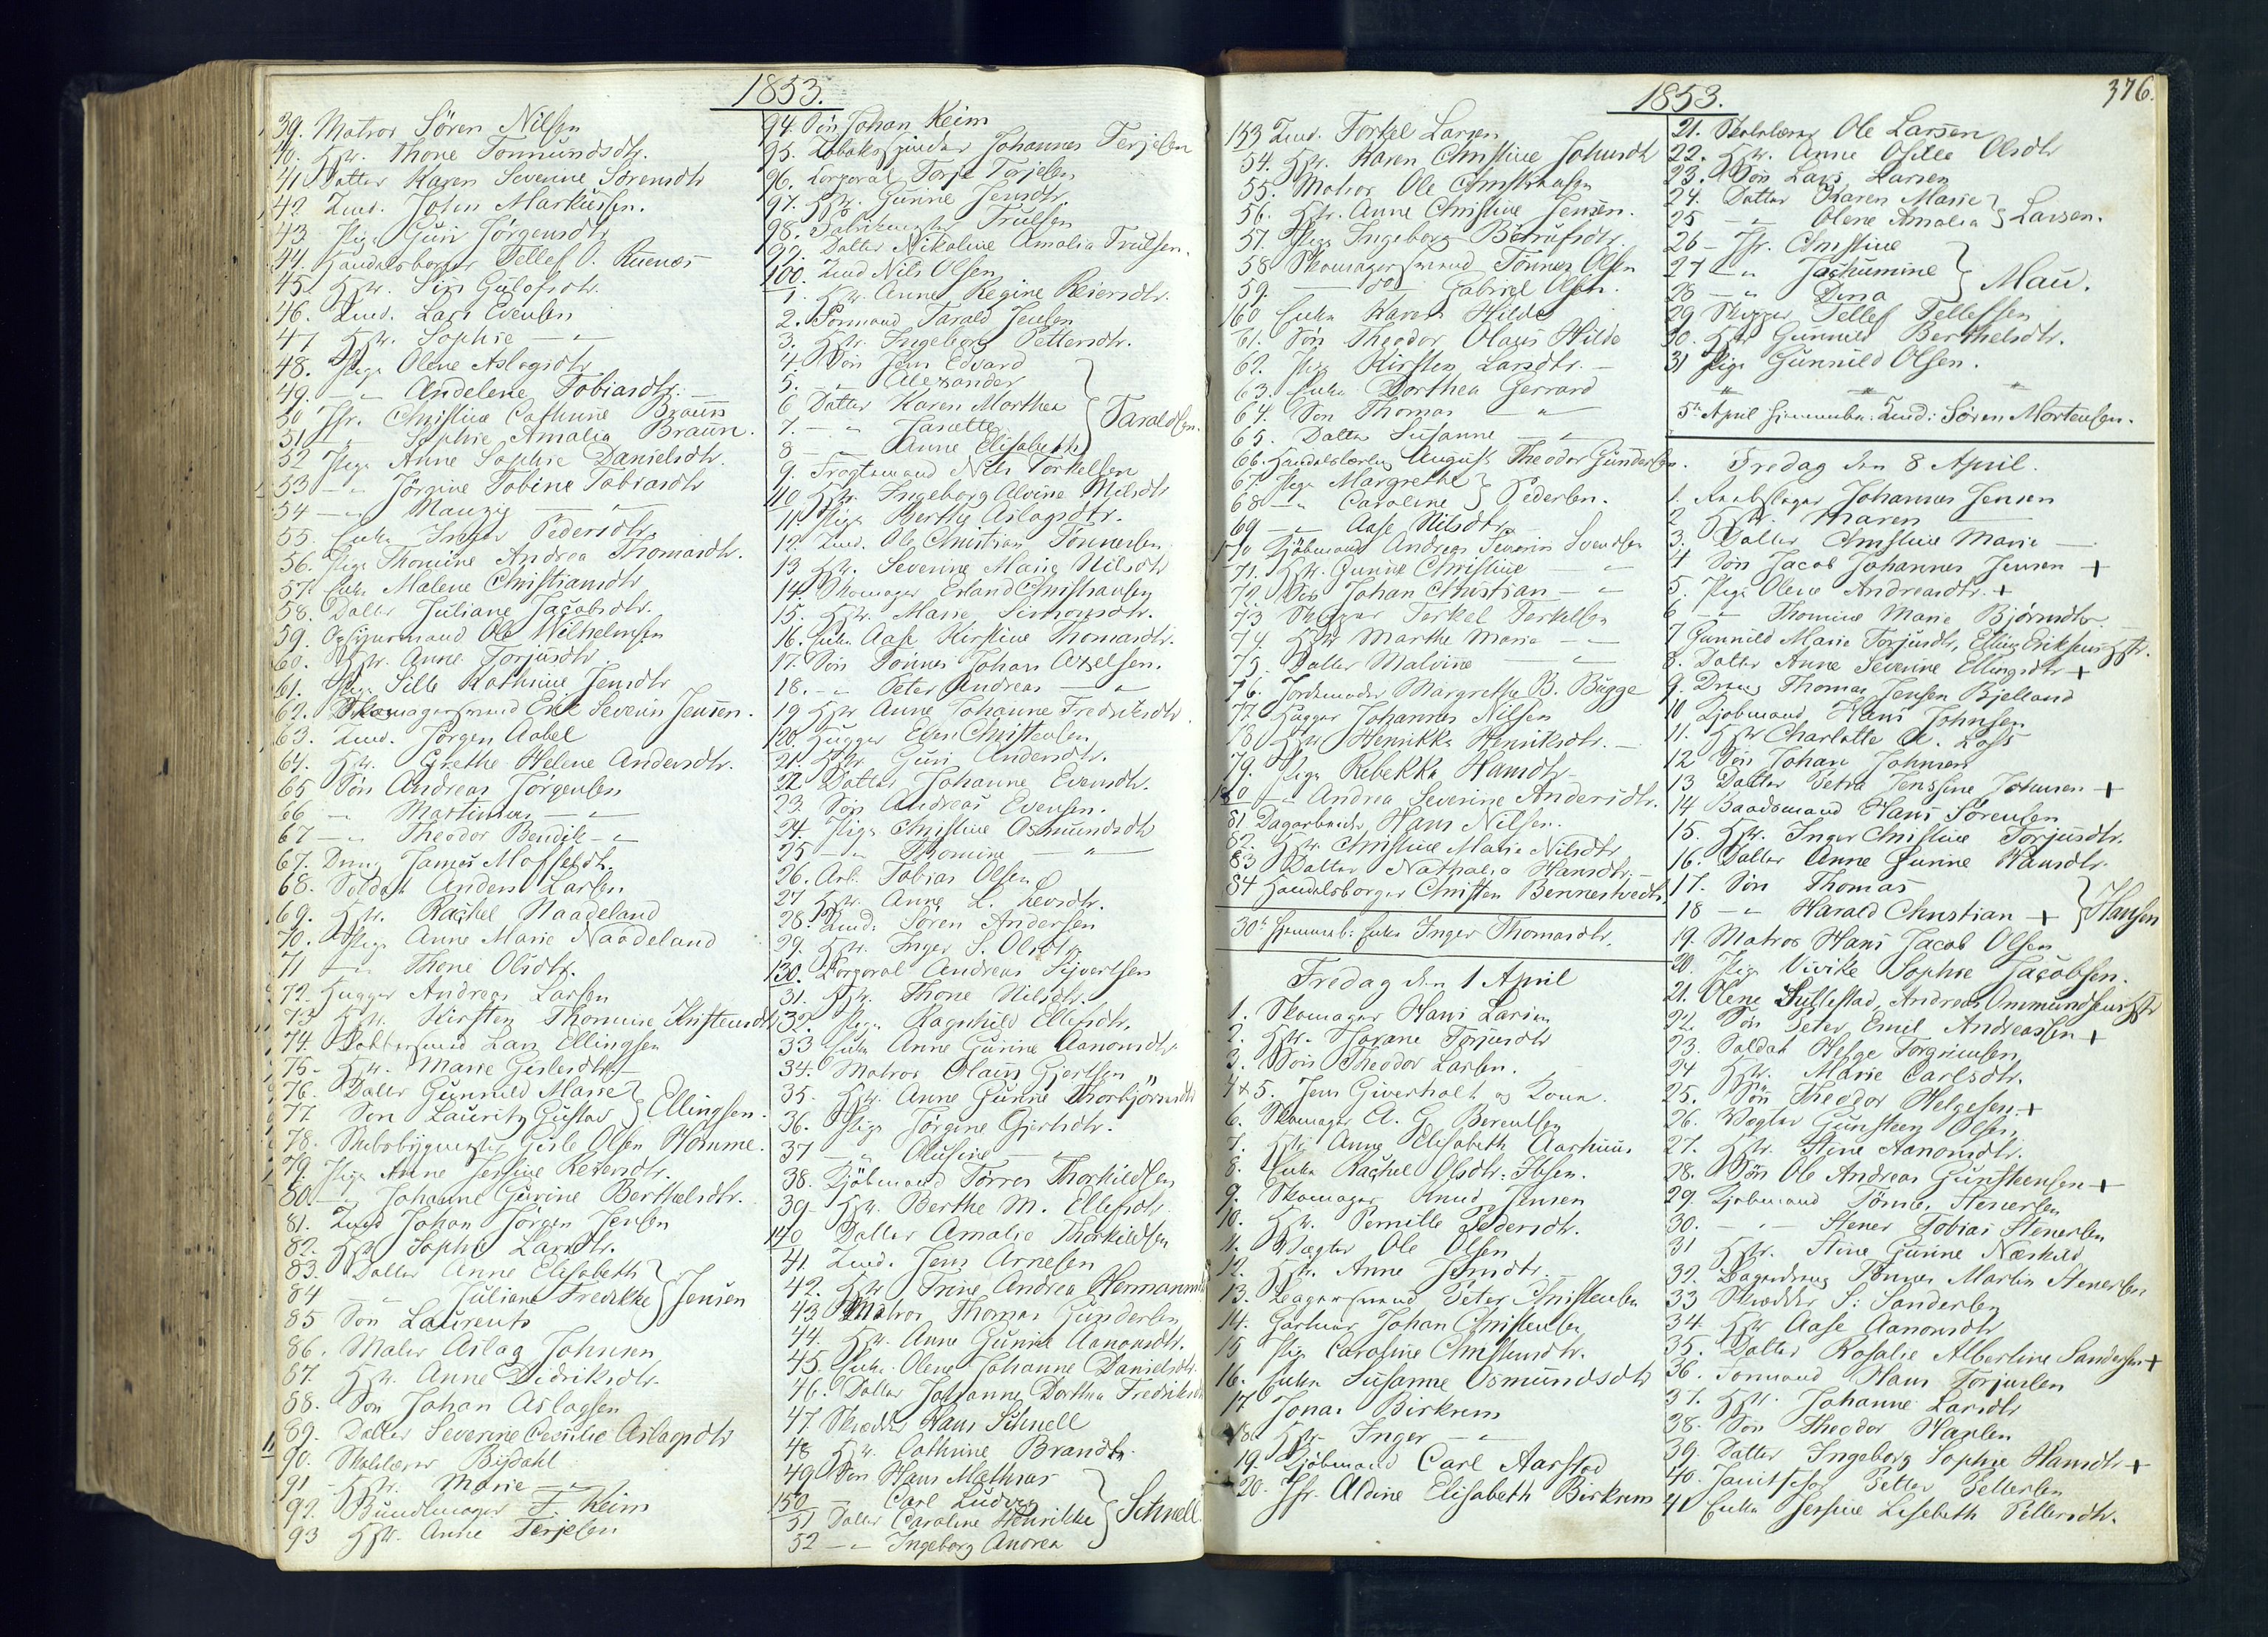 1853.
39. Matros Sören Nilsen
40. Hstr. Thone Tormundsdtr.
41 Datter Karen Severine Sörensdtr
42 Lmd. John Markussen.
43 Pige Guri Jörgensdtr
44. Handelsborger Tellef O. Ruenæs
45. Hstr. Siri Gulofsdtr.
46. Lmd. Lars Evensen
47 Hstr. Sophie — " —
48. Pige Olene Aslagsdtr
49. — " Andelene Tobiasdtr. —
50 Jfr. Christine Cathrine Braun
51 — " Sophie Amalia Braun.
52 Pige Anne Sophie Danielsdtr.
53 — " Jörgine Tobine Tobiasdtr
54 — " Mauzig — " —
55. Enke Inger Pedersdtr
56. Pige Thomine Andrea Thomasdtr.
57. Enke Malene Christiansdtr
58. Datter Juliane Jacobsdtr.
59. Opsynsmand Ole Wilhelmsen
60. Hstr. Anne Torjusdtr
61. Pige Sille Kathrine Jensdtr
62. Skomagersvend Erik Severin Jensen.
63. Lmd. Jörgen Aabel
64. Hstr. Grethe Helene Andersdtr.
65 Sön Andreas Jörgensen
66 — " Martinius — " —
67 — " Theodor Bendik — " —
67. Dreng James Moffeldt
68. Soldat Anders Larsen
69. Hstr. Rachel Naadeland
70. Pige Anne Marie Naadeland
71 — " Thone Olsdtr.
72. Hugger Andreas Larsen
73 Hstr. Kirsten Thomine Kristensdtr
74. Pottersvend Lars Ellingsen
75. Hstr. Marie Geslesdtr.
76. Datter Gunnild Marie } Ellingsen.
77. Sön Lauritz Gustav
78. Skibsbygmester Gisle Olsen Homme.
79. Pige Anne Jersine Reiersdtr.
80. — " Johanne Gurine Berthelsdtr.
81. Lmd Johan Jörgen Jensen
82. Hstr Sophie Larsdtr.
83. Datter Anne Elisabeth } Jensen
84 — " Juliane Fredrikke
85 Sön Laurents
86. Maler Aslag Johnsen
87. Hstr. Anne Didriksdtr.
88. Sön Johan Aslagsen
89. Datter Severine Cecilie Aslagsdtr
90. Skolelærer Bydahl
91 Hstr. Marie — " —
92. Bundtmager F. Keim
93 Hstr. Anne Terjesen
94. Sön Johan Keim
95. Tobaksspinder Johannes Terjesen
96. Korporal Torje Torjesen
97. Hstr. Gurine Jensdtr.
98. Fabrikmester Trulsen
99. Datter Nikoline Amalia Trulsen.
100. Lmd Nils Olsen
1. Hstr. Anne Regine Reiersdtr.
2. Tömmand Tarald Jensen
3. Hstr. Ingeborg Pettersdtr.
4. Sön Jens Edvard
5. — " Alexander
6 Datter Karen Marthea } Taraldsen.
7. — " Janette
8 — " Anne Elisabeth
9. Fragtemand Nils Torkelsen
110 Hstr. Ingeborg Alvine Nilsdtr
11. Pige Berthe Aslagsdtr.
12. Lmd. Ole Christian Tönnesen
13 Hstr. Severine Marie Nilsdtr
14. Skomager Erland Christiansen
15. Hstr. Marie Simonsdtr.
16. Enke Aase Kirstine Thomasdtr.
17. Sön Tönnes Johan Axelsen.
18. — " Peter Andreas — " —
19 Hstr Anne Johanne Fredriksdtr.
120. Hugger Even Christensen
21. Hstr Guri Andersdtr.
22 Datter Johanne Evensdtr.
23. Sön Andreas Evensen.
24. Pige Christine Osmundsdtr
25 — " Thomine — " —
26. Arb. Tobias Olsen
27 Hstr. Anne L. Levsdtr.
28. Lmd. Sören Andersen
29. Hstr. Inger S. Olsdtr
130. Korporal Andreas Syvertsen
31. Hstr. Thone Nilsdtr.
32. Pige Ragnhild Ellefsdtr.
33 Enke Anne Gurine Aanonsdtr.
34. Matros Olaus Gjertsen
35. Hstr. Anne Gurine Thorbjörnsdtr
36. Pige Jörgine Gjertsdtr.
37 — " Olufine — " —
38. Kjöbmand Törres Thorkildsen
39. Hstr. Berthe M. Ellefsdtr.
140 Datter Amalie Thorkildsen
41. Lmd. Jens Arnesen
42. Hstr. Trine Andrea Hermansen
43 Matros Thomas Gundersen
44. Hstr. Anne Gurine Aanonsdtr.
45. Enke Olene Johanne Danielsdtr.
46. Datter Johanne Dorthea Fredriksdtr
47. Skrædder Hans Schnell
48 Hstr. Cathrine Brandt
49 Sön Hans Mathias
150 — " Carl Ludvig } Schnell
51 Datter Caroline Henrikke
52 — " Ingeborg Andrea
1853.
376.
153 Lmd. Torkel Larsen
54. Hstr. Karen Christine Johnsdtr
55. Matros Ole Christiansen
56. Hstr. Anne Christine Jensen.
57. Pige Ingeborg Börrufsdtr.
58 Skomagersvend Tönnes Olsen
59. — do — Gabriel Olsen.
160 Enke Karen Hilde
61. Sön Theodor Olaus Hilde
62. Pige Kirsten Larsdtr. —
63. Enke Dorthea Gerrard
64. Sön Thomas — " —
65. Datter Susanne — " —
66. Handelslærling August Theodor Gundersen.
67. Pige Margrethe } Pedersen.
68 — " Caroline
69 — " Aase Nilsdtr
170 Kjöbmand Andreas Severin Svendsen
71. Hstr. Gunine Christine — " —
72 Sön Johan Christian — " —
73 Skipper Terkel Terkelsen
74. Hstr Marthe Marie — " —
75. Datter Malvine — " —
76. Jordemoder Margrethe B. Bugge
77. Hugger Johannes Nilsen
78. Hstr Henrikke Henriksdtr. —
79. Pige Rebekka Hansdtr —
180 — " Andrea Severine Andersdtr.
81 Dagarbeider Hans Nilsen.
82. Hstr Christine Marie Nilsdtr
83 Datter Nathalia Hansdtr. —
84 Handelsborger Christen Bennestvedt
30te Hjemmeb: Enke Inger Thomasdtr.
Fredag den 1 April
1. Skomager Hans Larsen
2. Hstr. Torane Torjusdtr
3. Sön Theodor Larsen.
4 & 5. Jens Giverholt og Kone.
6. Skomager A. G. Berentsen
7. Hstr Anne Elisabeth Aarhuus
8. Enke Rachel Olsdtr. Ibsen.
9. Skomager Knud Jensen
10. Hstr. Pernille Pedersdtr.
11. Vægter Ole Olsen
12. Hstr. Anne Jensdtr.
13. Bagersvend Peter Christensen
14. Gartner Johan Christensen
15 Pige Caroline Christensdtr.
16. Enke Susanne Osmundsdtr
17 Jonas Birkrem
18. Hstr. Inger — " —
19. Kjöbmand Carl Aarstad
20. Jfr. Aldine Elisabeth Birkrem
21. Skolelærer Ole Larsen
22. Hstr. Anne Osille Olsdtr
23. Sön Lars Larsen
24. Datter Karen Marie } Larsen.
25 — " Olene Amalia
26 — Jfr. Christine
27 — " Jachumine } Mau.
28 — " Dina
29 Skipper Tellef Tellefsen
30. Hstr Gunnild Berthelsdtr.
31 Pige Gunnild Olsen.
" " "
5te April hjemmeber. Lmd: Sören Mortensen.
Fredag den 8 April.
1. Rebslager Johannes Jensen
2 Hstr. Maren —
3. Datter Christine Marie —
4 Sön Jacob Johannes Jensen +
5. Pige Olene Andreasdtr. +
6 — " Thomine Marie Björnsdtr. —
7 Gunnild Marie Torjusdtr, Elling Eriksens Hstr.
8. Datter Anne Severine Ellingsdtr +
9. Dreng Thomas Jensen Bjelland
10 Kjöbmand Hans Johnsen
11. Hstr Charlotte A. Loss
12 Sön Johan Johnsen
13 Datter Petra Jenssine Johnsen +
14 Baadsmand Hans Sörensen
15. Hstr. Inger Christine Torjusdtr.
16. Datter Anne Gurine Hansdtr.
17. Sön Thomas } Hansen
18 — " Harald Christian +
19. Matros Hans Jacob Olsen
20. Pige Vivike Sophie Jacobsen.
21. Olene Sullestad, Andreas Ommundsens Hstr
22. Sön Peter Emil Andreassen +
23. Soldat Helge Torgrimsen
24 Hstr. Marie Carlsdtr.
25. Sön Theodor Helgesen +
26. Vægter Gunsten Olsen
27. Hstr. Stine Aanonsdtr.
28. Sön Ole Andreas Gunsteensen +
29. Kjöbmand Tönnes Stenersen
30. — " — Stener Tobias Stenersen
31 Hstr. Stine Gurine Næskild
32. Bagerdreng Tönnes Martin Stenersen
33 Skrædder S: Sandersen
34 Hstr Aase Aanonsdtr
35. Datter Rosalie Albertine Sandersen +
36. Tömmand Hans Torjusen
37. Hstr. Johanne Larsdtr
38. Sön Theodor Hansen
39. Datter Ingeborg Sophie Hansdtr +
40. Janitschar Petter Pettersen
41 Enke Jersine Lisebeth Pettersdtr.